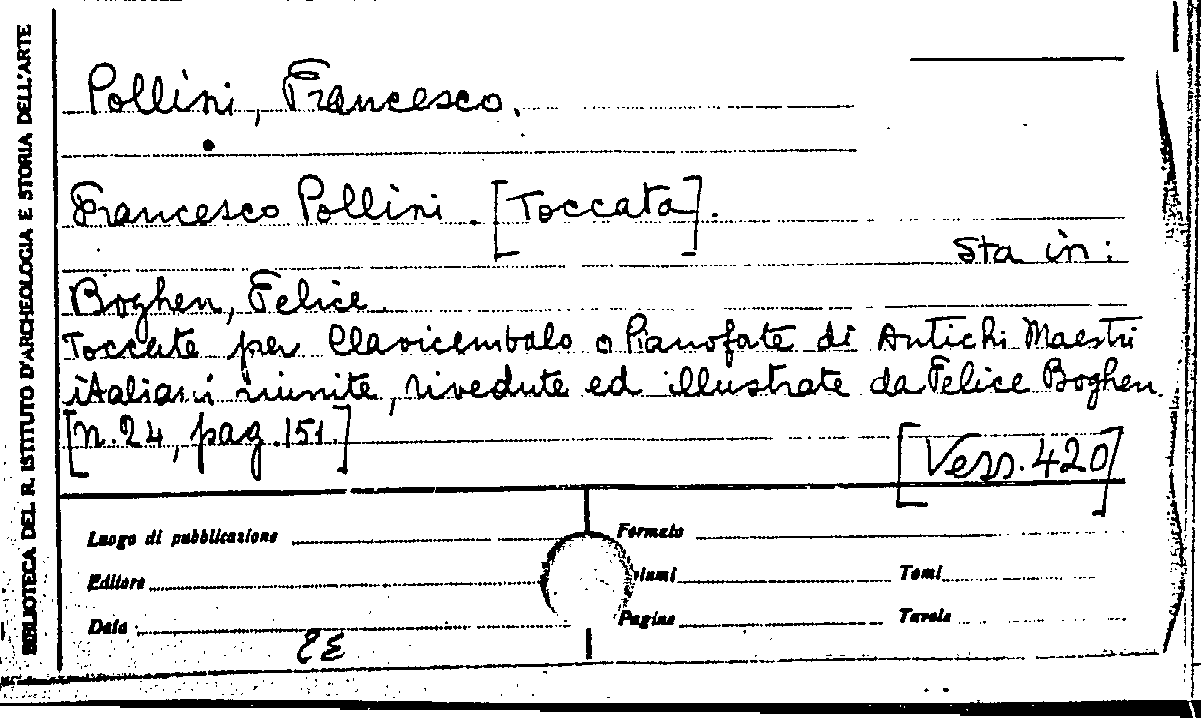 BIBLIOTECA DEL R. ISTITUTO D'ARCHEOLOGIA E STORIA DELL'ARTE
Pollini, Francesco.
Francesco Pollini. [Toccata].
Sta in:
Boghen, Felice.
Toccate per Clavicembalo o Pianoforte di Antichi Maestri
italiani riunite, rivedute ed illustrate da Felice Boghen.
[n. 24, pag. 151.]
[Vess. 420]
Luogo di pubblicazione Formato
Editore Tomi
Data Pagine Tavole